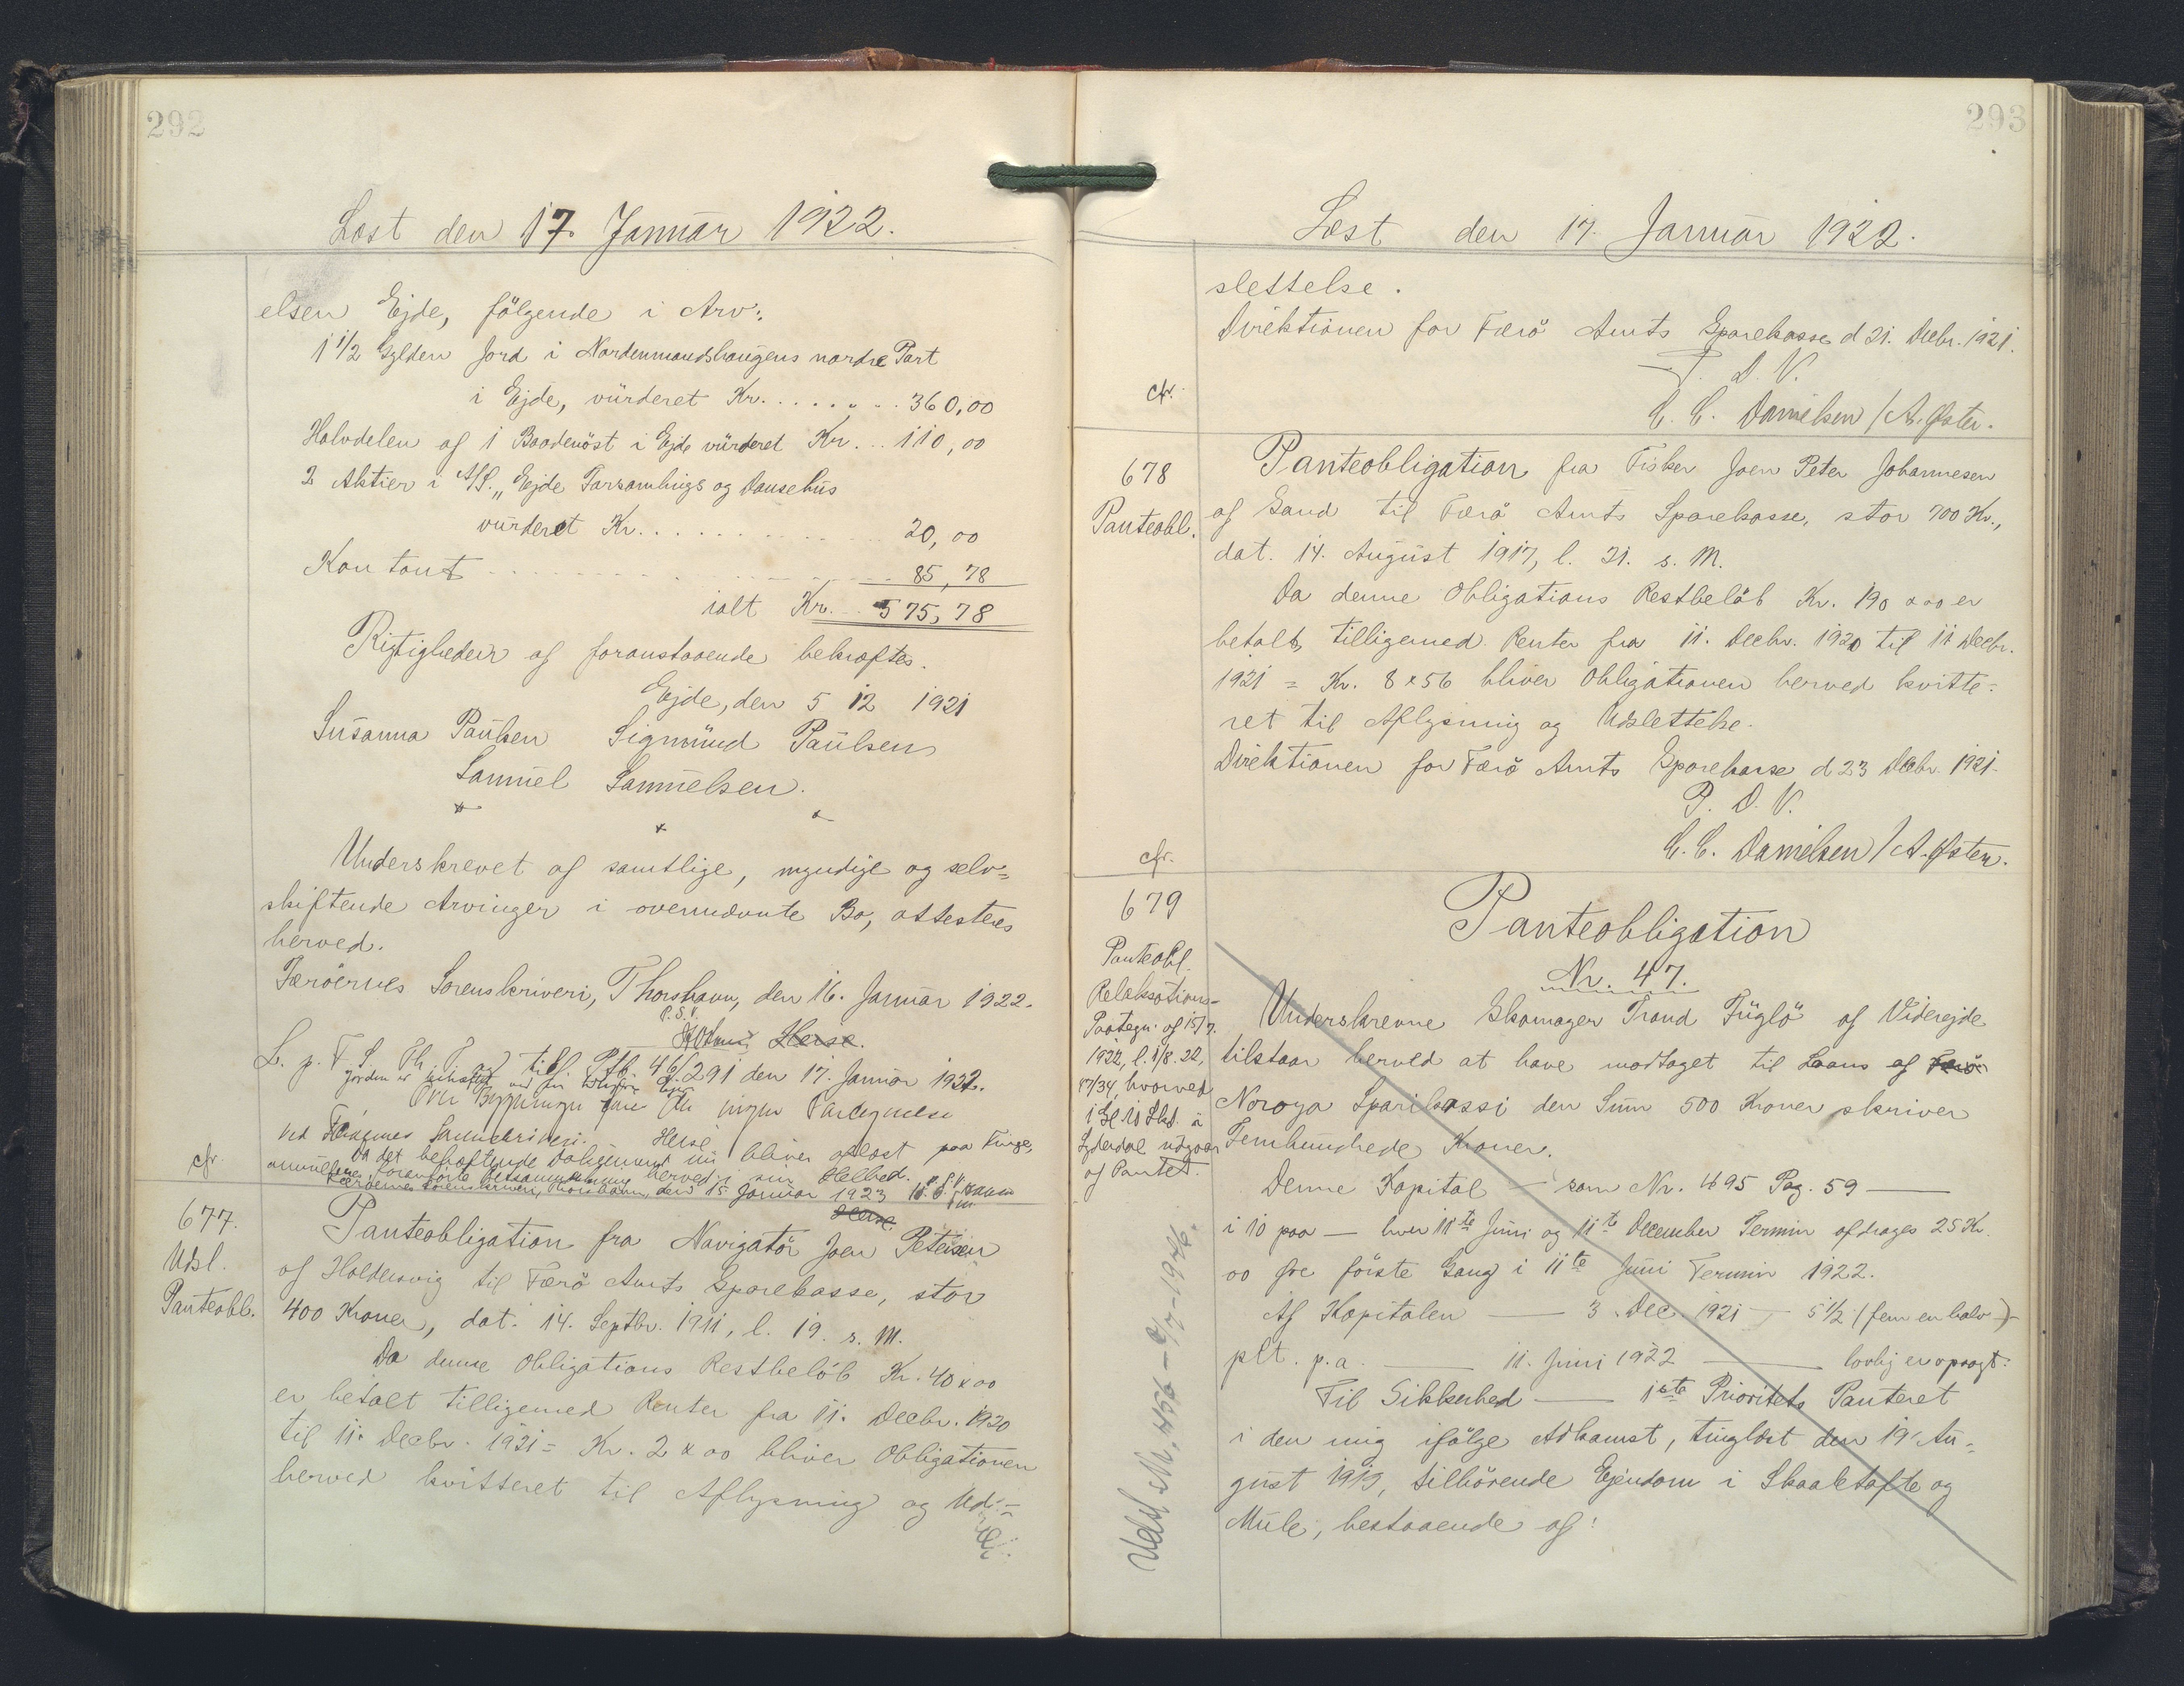 292
Læst den 17. Januar 1922.
elsen Ejde, følgende i Arv:
1 1/2 Gylden Jord i Nordenmandshaugens nordre Part
i Ejde, vurderet Kr. . . . . . . 360,00
Halvdelen af 1 Baadenöst i Ejde vurderet Kr. . . 110,00
2 Aktier i A/S. „Ejde Forsamlings og Dansehus
vurderet Kr. . . . . . . . . . . 20,00
Kontant . . . . . . . . . . 85,78
ialt Kr. . . 575,78
Rigtigheden af foranstaaende bekræftes.
Ejde, den 5 12 1921
Susanna Paulsen Sigmund Paulsen
Samuel Samuelsen.
Underskrevet af samtlige, myndige og selv=
skiftende Arvinger i ovennævnte Bo, attesteres
herved.
Færöernes Sorenskriveri, Thorshavn, den 16. Januar 1922.
P.S.V.
Heise.
L. p. F. S. Th. Ptb. 46/291 den 17. Januar 1922.
Jorden er
Over Bygningen ingen
ved Færöernes Sorenskriveri. Heise
Da det behæftende Dokument nu bliver aflæst paa Tinge,
annulleres foranførte Retsanmærkning herved i sin Helhed.
Færöernes Sorenskriveri, Thorshavn, den 15. Januar 1923
Heise.
cfr.
677.
Udsl.
Panteobl.
Panteobligation fra Navigatör Joen Petersen
af Haldersvig til Færö Amts Sparekasse, stor
400 Kroner, dat. 14. Septbr. 1911, l. 19. s. M.
Da denne Obligations Restbelöb Kr. 40 x 00
er betalt tilligemed Renter fra 11. Decbr. 1920
til 11. Decbr. 1921 = Kr. 2 x 00 bliver Obligationen
herved kvitteret til Aflysning og Ud=
293
Læst den 17. Januar 1922.
slettelse.
Direktionen for Færö Amts Sparekasse d 21. Decbr. 1921.
P. D. V.
C. C. Danielsen / A. Øster.
cfr.
678
Panteobl.
Panteobligation fra Fisker Joen Peter Johannesen
af Sand til Færö Amts Sparekasse, stor 700 Kr.,
dat. 14. August 1917, l. 21. s. M.
Da denne Obligations Restbelöb Kr. 190 x 00 er
betalt, tilligemed Renter fra 11. Decbr. 1920 til 11 Decbr.
1921 = Kr. 8 x 56 bliver Obligationen herved kvitte=
ret til Aflysning og Udslettelse.
Direktionen for Færö Amts Sparekasse d 23 Decbr. 1921.
P. D. V.
C. C. Danielsen / A. Øster.
cfr.
679
Panteobl.
Relaksations=
Paategn. af 15/7.
1922, l. 1/8. 22,
47/34, hvorved
1 Gl 10 Skd. i
udgaar
af Pantet.
Panteobligation
Nr. 47.
Underskrevne Skomager Trond Fuglö af Viderejde
tilstaar herved at have modtaget til Laans af Færö
Noroya Sparikassi den Sum 500 Kroner skriver
Femhundrede Kroner.
Denne Kapital — som Nr. 495 Pag. 59 —
i 10 paa — hver 11te Juni og 11te December Termin afdrages 25 Kr.
00 Øre förste Gang i 11te Juni Termin 1922.
Af Kapitalen — 3. Dec. 1921 — 5 1/2 (fem en halv)
pCt. p.a. — 11. Juni 1922 — lovlig er opsagt.
Til Sikkerhed — 1ste Prioritets Panteret
i den mig ifölge Adkomst, tinglæst den 19. Au=
gust 1919, tilhörende Ejendom i Skaaletofte og
Mule, bestaaende af: